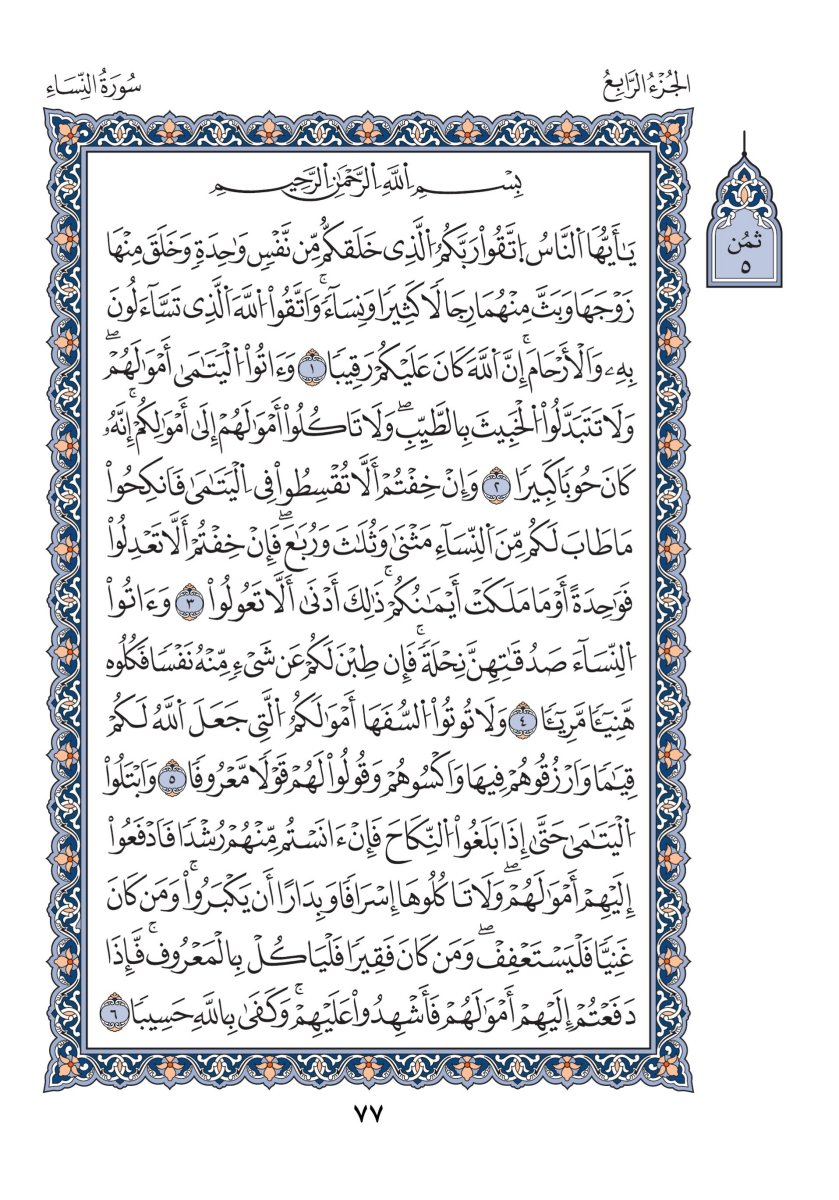 الجُزْءُ الرَّابِعُ
سُورَةُ النِّسَاءِ
ثمُن
٥
بِسْمِ اِ۬للَّهِ اِ۬لرَّحْمَٰنِ اِ۬لرَّحِيمِ
يَٰأَيُّهَا اَ۬لنَّاسُ اُ۪تَّقُواْ رَبَّكُمُ اُ۬لَّذِى خَلَقكُّم مِّن نَّفْسٖ وَٰحِدَةٖ وَخَلَقَ مِنْهَا
زَوْجَهَا وَبَثَّ مِنْهُمَا رِجَالٗا كَثِيرٗا وَنِسَآءٗۚ وَاَتَّقُواْ اُ۬للَّهَ اَ۬لَّذِى تَسَّآءَلُونَ
بِهِۦ وَالْأَرْحَامَۚ إِنَّ اَ۬للَّهَ كَانَ عَلَيْكُمْ رَقِيبٗا ١ وَءَاتُواْ اُ۬لْيَتَٰمَىٰ أَمْوَٰلَهُمْۖ
وَلَا تَتَبَدَّلُواْ اُ۬لْخَبِيثَ بِالطَّيِّبِۖ وَلَا تَاكُلُواْ أَمْوَٰلَهُمْ إِلَىٰ أَمْوَٰلِكُمْۚ إِنَّهُۥ
كَانَ حُوبٗا كَبِيرٗا ٢ وَإِنْ خِفْتُمْ أَلَّا تُقْسِطُواْ فِى اِ۬لْيَتَٰمَىٰ فَانكِحُواْ
مَا طَابَ لَكُم مِّنَ اَ۬لنِّسَآءِ مَثْنَىٰ وَثُلَٰثَ وَرُبَٰعَۖ فَإِنْ خِفْتُمْ أَلَّا تَعْدِلُواْ
فَوَٰحِدَةً أَوْ مَا مَلَكَتْ أَيْمَٰنُكُمْۚ ذَٰلِكَ أَدْنَىٰ أَلَّا تَعُولُواْ ٣ وَءَاتُواْ
اُ۬لنِّسَآءَ صَدُقَٰتِهِنَّ نِحْلَةٗۚ فَإِن طِبْنَ لَكُمْ عَن شَىْءٖ مِّنْهُ نَفْسٗا فَكُلُوهُ
هَّنِيٓـٔٗا مَّرِيٓـٔٗا ٤ وَلَا تُوتُواْ اُ۬لسُّفَهَا أَمْوَٰلَكُمُ اُ۬لَّتِى جَعَلَ اَ۬للَّهُ لَكُمْ
قِيَٰمٗا وَارْزُقُوهُمْ فِيهَا وَاكْسُوهُمْ وَقُولُواْ لَهُمْ قَوْلٗا مَّعْرُوفٗا ٥ وَابْتَلُواْ
اُ۬لْيَتَٰمَىٰ حَتَّىٰ إِذَا بَلَغُواْ اُ۬لنِّكَاحَ فَإِنْ ءَانَسْتُم مِّنْهُمْ رُشْدٗا فَادْفَعُواْ
إِلَيْهِمْ أَمْوَٰلَهُمْۖ وَلَا تَاكُلُوهَا إِسْرَافٗا وَبِدَارًا أَن يَكْبَرُواْۚ وَمَن كَانَ
غَنِيّٗا فَلْيَسْتَعْفِفْۖ وَمَن كَانَ فَقِيرٗا فَلْيَاكُلْ بِالْمَعْرُوفۚ فَّإِذَا
دَفَعْتُمْ إِلَيْهِمْ أَمْوَٰلَهُمْ فَأَشْهِدُواْ عَلَيْهِمْۚ وَكَفَىٰ بِاللَّهِ حَسِيبٗا ٦
٧٧